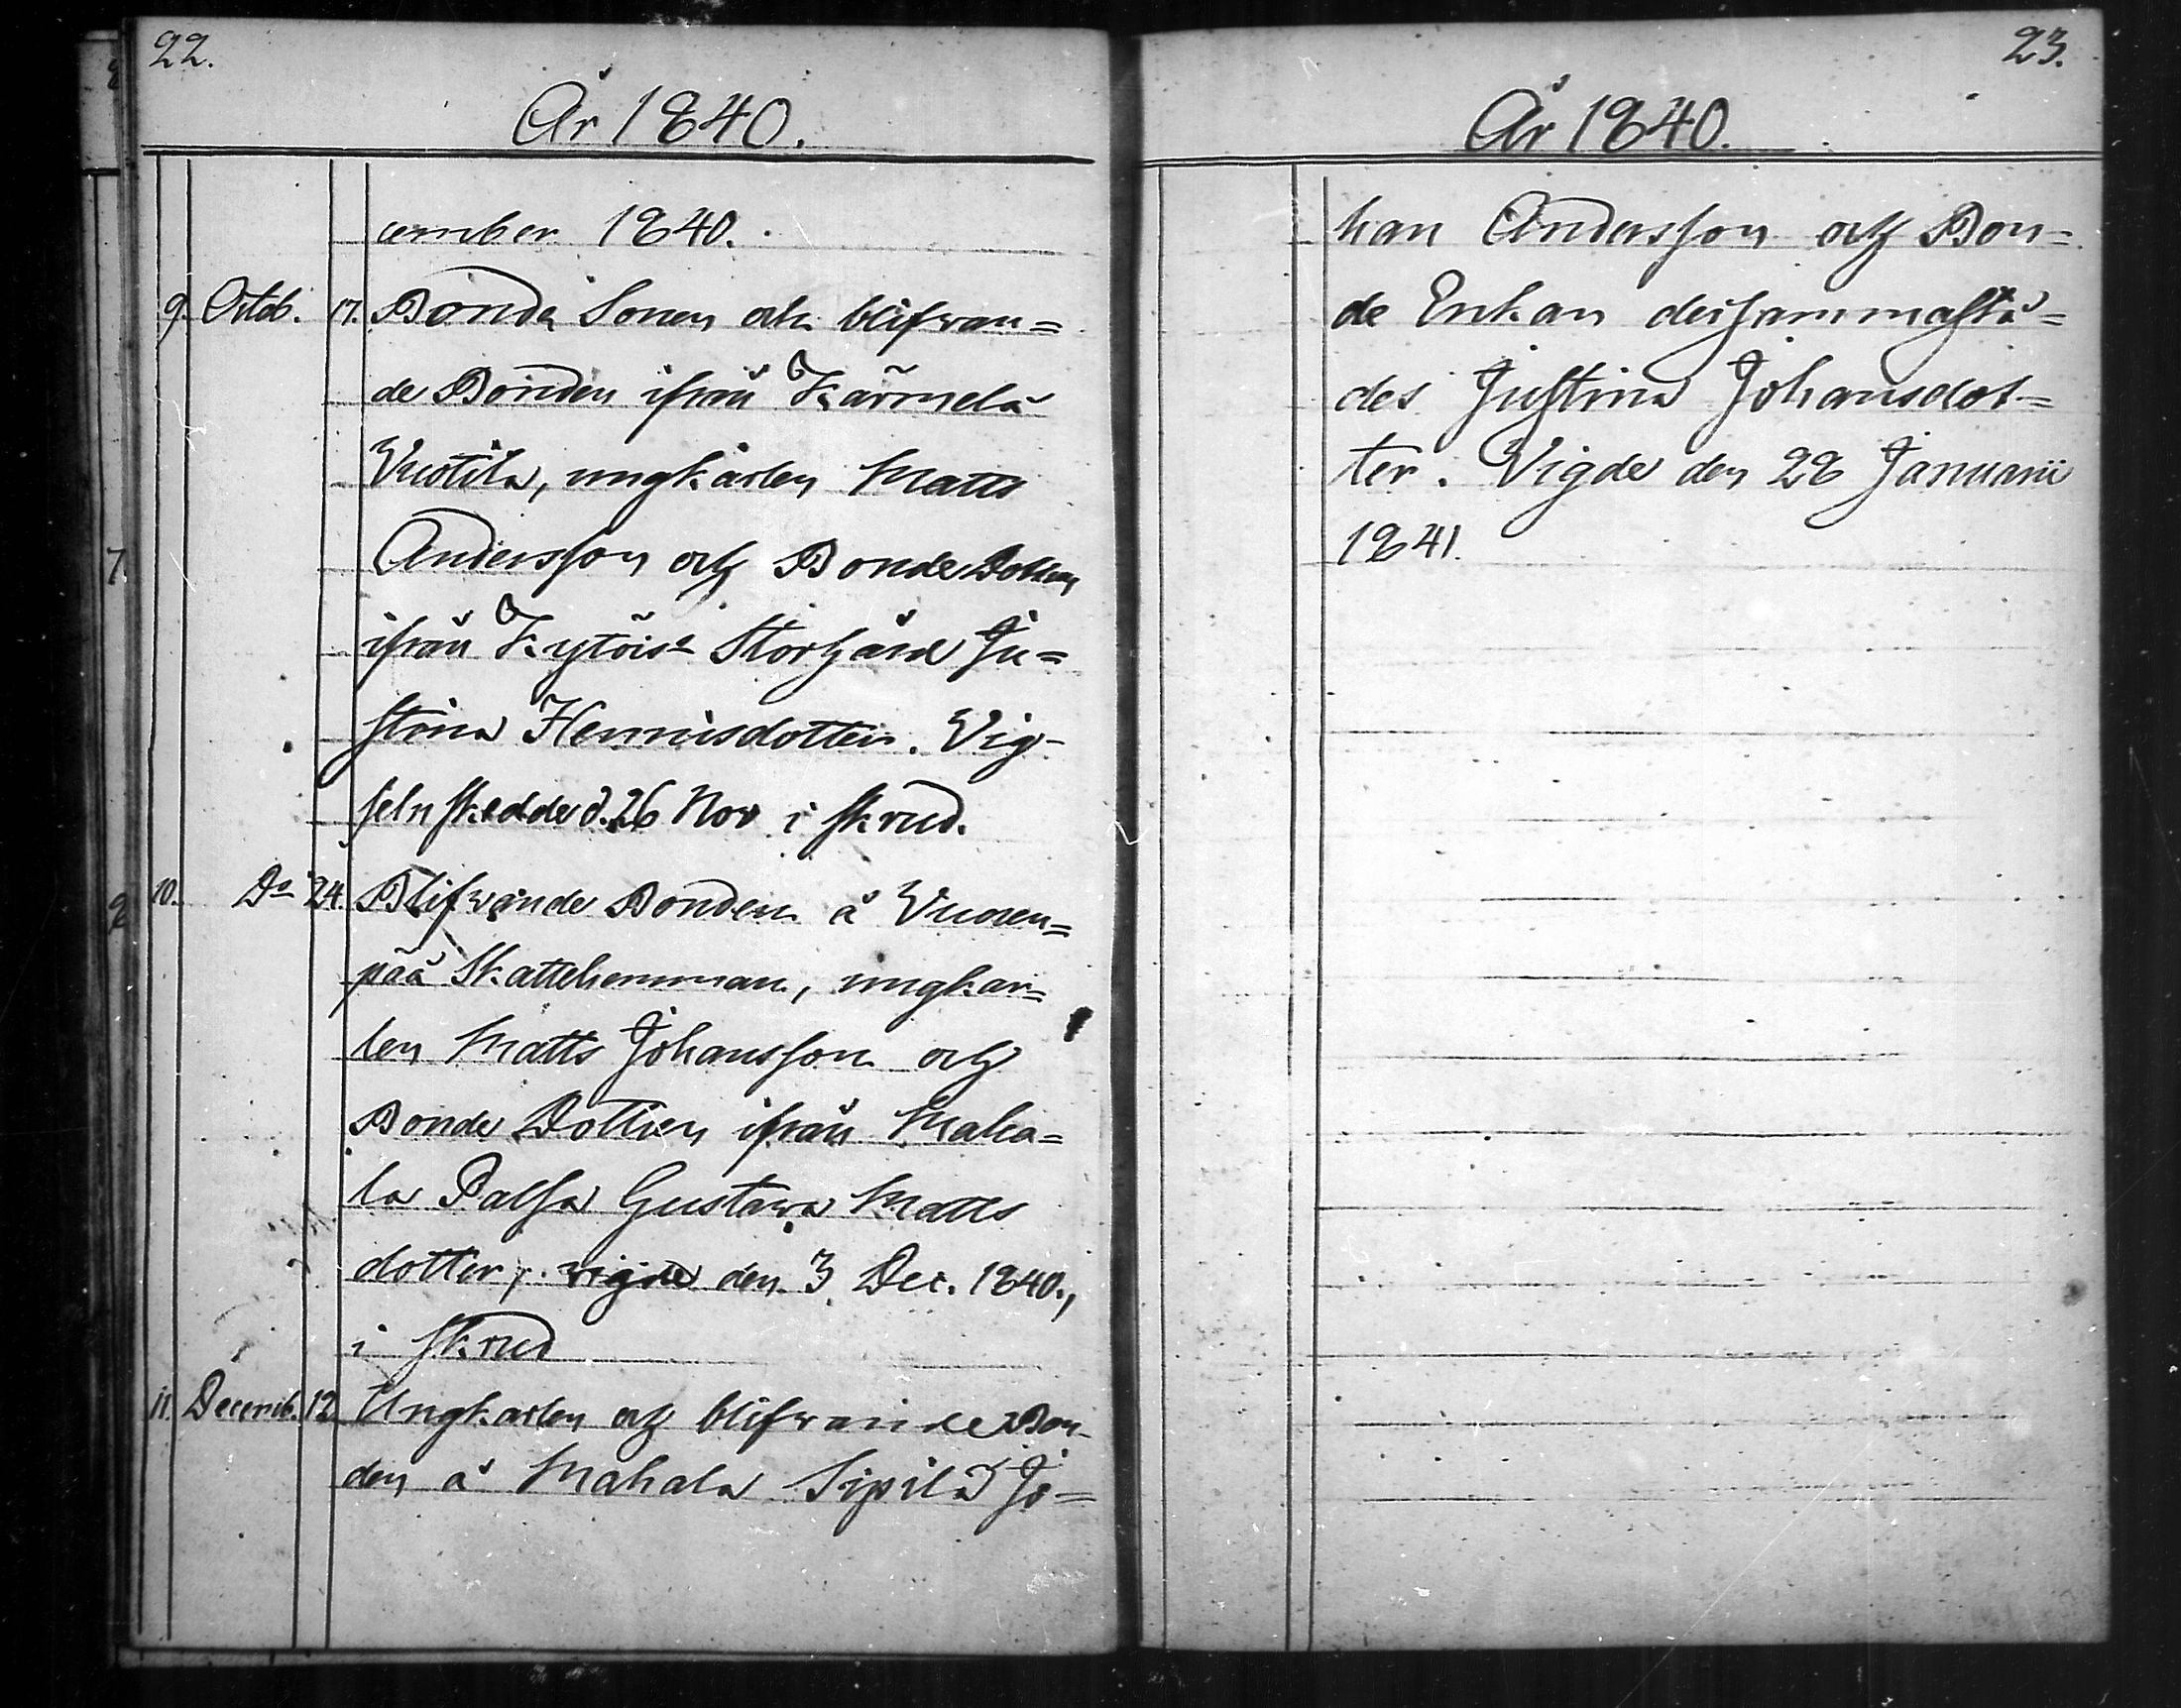 22.
År 1840.
cember 1840.
9. Octob. 17. Bonde Sonen och blifwan=
de Bonden ifrån Kärmelä
Vuotila, ungkarlen Matts
Andersson och Bonde Dottren
ifrån Kytöis Storgård Ju=
stina Henricsdotter. Vig-
seln skedde d. 26 Nov i skrud.
10. Do 24. Blifwande Bonden å Vuoren=
pää Skattehemman, ungkar=
len Matts Johansson och
Bonde Dottren ifrån Maha=
la Palsa Gustawa Matts
dotter, vigde den 3 Dec. 1840.,
i skrud
11. Decemb. 12 Ungkarlen och blifwande Bon-
den å Mahala Sipilä Jo=
23.
År 1840.
han Andersson och Bon=
de Enkan dersammastä=
des Justina Johansdot=
ter. Vigde den 28 Januarii
1841.